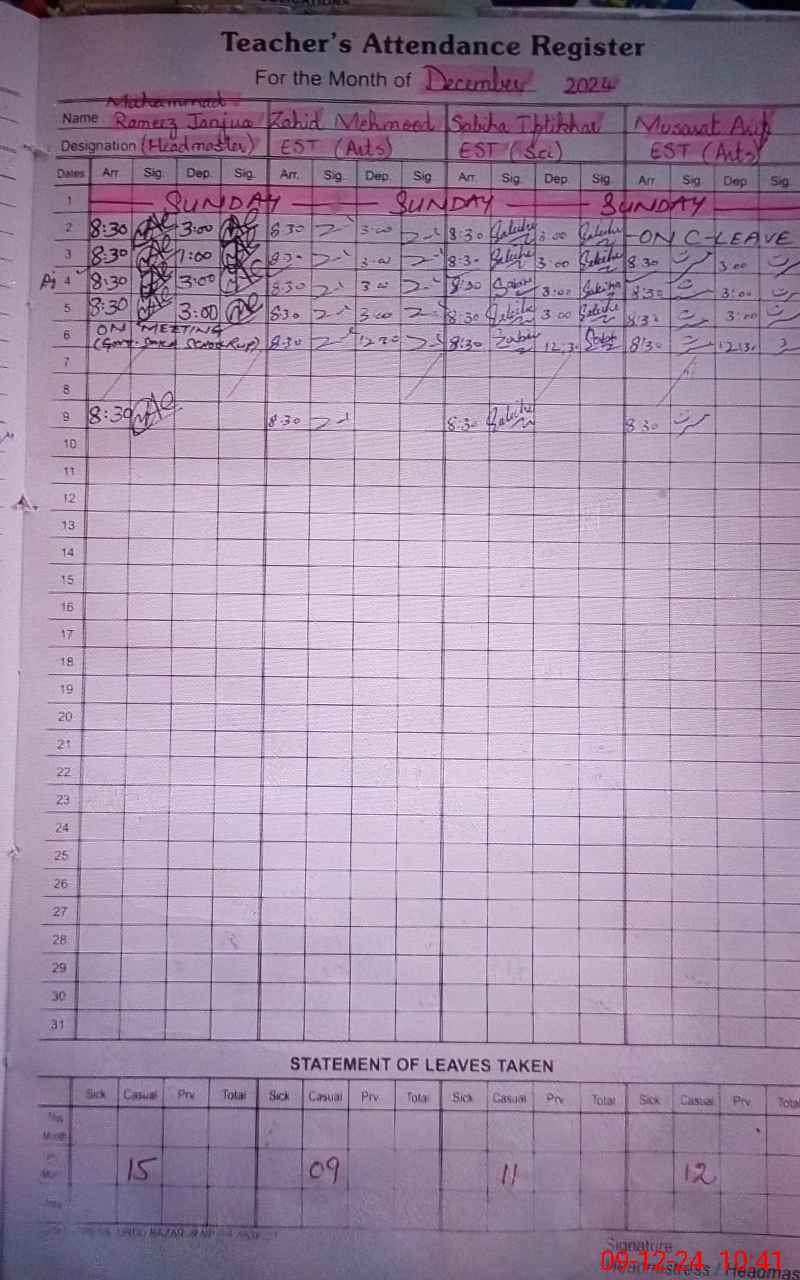 Teacher's Attendance Register
For the Month of December 2024
Name Muhammad Rameez Janjua Zahid Mehmood Sabiha Iftikhar Musarat Arif
Designation (Headmaster) EST (Arts) EST (Sci) EST (Arts)
Dates Arr. Sig. Dep. Sig. Arr. Sig. Dep. Sig Arr. Sig. Dep. Sig. Arr Sig Dep Sig
1 SUNDAY SUNDAY SUNDAY
2 8:30 3:00 8:30 3:00 8:30 Sabiha 3:00 Sabiha ON C-LEAVE
3 8:30 1:00 8:30 3:00 8:30 Sabiha 3:00 Sabiha 8:30 مسرت 3:00 مسرت
4 8:30 3:00 8:30 3:00 8:30 Sabiha 3:00 Sabiha 8:30 مسرت 3:00 مسرت
5 8:30 3:00 8:30 3:00 8:30 Sabiha 3:00 Sabiha 8:30 مسرت 3:00 مسرت
6 ON MEETING 8:30 12:30 8:30 Sabiha 12:30 Sabiha 8:30 مسرت 12:30
7
8
9 8:30 8:30 8:30 Sabiha 8:30 مسرت
10
11
12
13
14
15
16
17
18
19
20
21
22
23
24
25
26
27
28
29
30
31
STATEMENT OF LEAVES TAKEN
Sick Casual Prv Total Sick Casual Prv. Total Sick Casual Prv. Total Sick Casual Prv. Total
Month
15 09 11 12
URDU BAZAR
Signature
Headmistress / Headmas
09-12-24 10:41